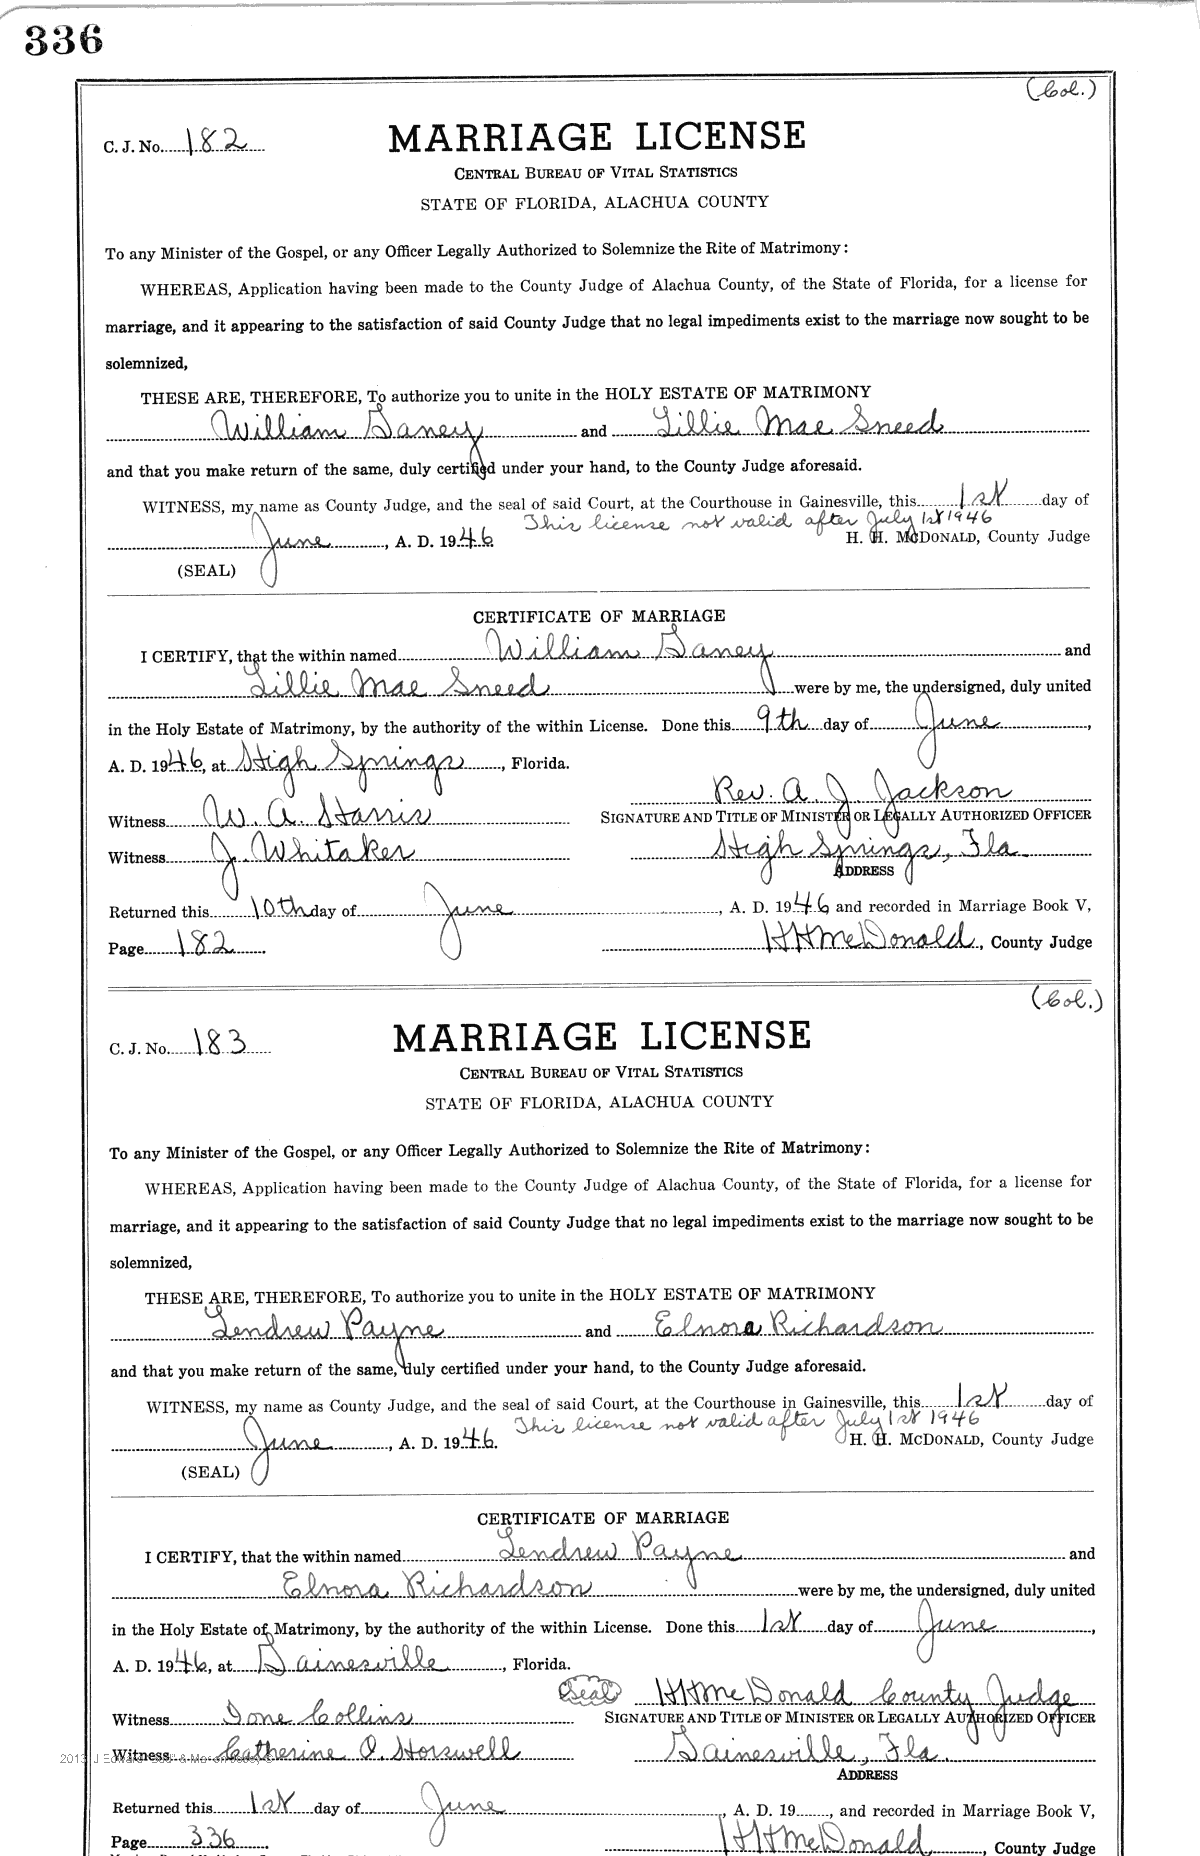 336
(Col.)
C. J. No. 182
MARRIAGE LICENSE
CENTRAL BUREAU OF VITAL STATISTICS
STATE OF FLORIDA, ALACHUA COUNTY
To any Minister of the Gospel, or any Officer Legally Authorized to Solemnize the Rite of Matrimony:
WHEREAS, Application having been made to the County Judge of Alachua County, of the State of Florida, for a license for
marriage, and it appearing to the satisfaction of said County Judge that no legal impediments exist to the marriage now sought to be
solemnized,
THESE ARE, THEREFORE, To authorize you to unite in the HOLY ESTATE OF MATRIMONY
William Ganey and Lillie Mae Sneed
and that you make return of the same, duly certified under your hand, to the County Judge aforesaid.
WITNESS, my name as County Judge, and the seal of said Court, at the Courthouse in Gainesville, this 1st day of
This license not valid after July 1st 1946
June, A. D. 1946 H. H. MCDONALD, County Judge
(SEAL)
CERTIFICATE OF MARRIAGE
I CERTIFY, that the within named William Ganey and
Lillie Mae Sneed were by me, the undersigned, duly united
in the Holy Estate of Matrimony, by the authority of the within License. Done this 9th day of June,
A. D. 1946, at High Springs, Florida.
Rev. A. J. Jackson
Witness W. A. Harris SIGNATURE AND TITLE OF MINISTER OR LEGALLY AUTHORIZED OFFICER
Witness J. Whitaker High Springs, Fla.
ADDRESS
Returned this 10th day of June, A. D. 1946 and recorded in Marriage Book V,
Page 182 HHMcDonald, County Judge
(Col.)
C. J. No. 183
MARRIAGE LICENSE
CENTRAL BUREAU OF VITAL STATISTICS
STATE OF FLORIDA, ALACHUA COUNTY
To any Minister of the Gospel, or any Officer Legally Authorized to Solemnize the Rite of Matrimony:
WHEREAS, Application having been made to the County Judge of Alachua County, of the State of Florida, for a license for
marriage, and it appearing to the satisfaction of said County Judge that no legal impediments exist to the marriage now sought to be
solemnized,
THESE ARE, THEREFORE, To authorize you to unite in the HOLY ESTATE OF MATRIMONY
Lendrew Payne and Elnora Richardson
and that you make return of the same, duly certified under your hand, to the County Judge aforesaid.
WITNESS, my name as County Judge, and the seal of said Court, at the Courthouse in Gainesville, this 1st day of
This license not valid after July 1st 1946
June, A. D. 1946. H. H. MCDONALD, County Judge
(SEAL)
CERTIFICATE OF MARRIAGE
I CERTIFY, that the within named Lendrew Payne and
Elnora Richardson were by me, the undersigned, duly united
in the Holy Estate of Matrimony, by the authority of the within License. Done this 1st day of June,
A. D. 1946, at Gainesville, Florida.
Seal HHMcDonald County Judge
Witness Ione Collins SIGNATURE AND TITLE OF MINISTER OR LEGALLY AUTHORIZED OFFICER
Witness Catherine O. Horswell Gainesville, Fla.
ADDRESS
Returned this 1st day of June, A. D. 19, and recorded in Marriage Book V,
Page 336 HHMcDonald, County Judge